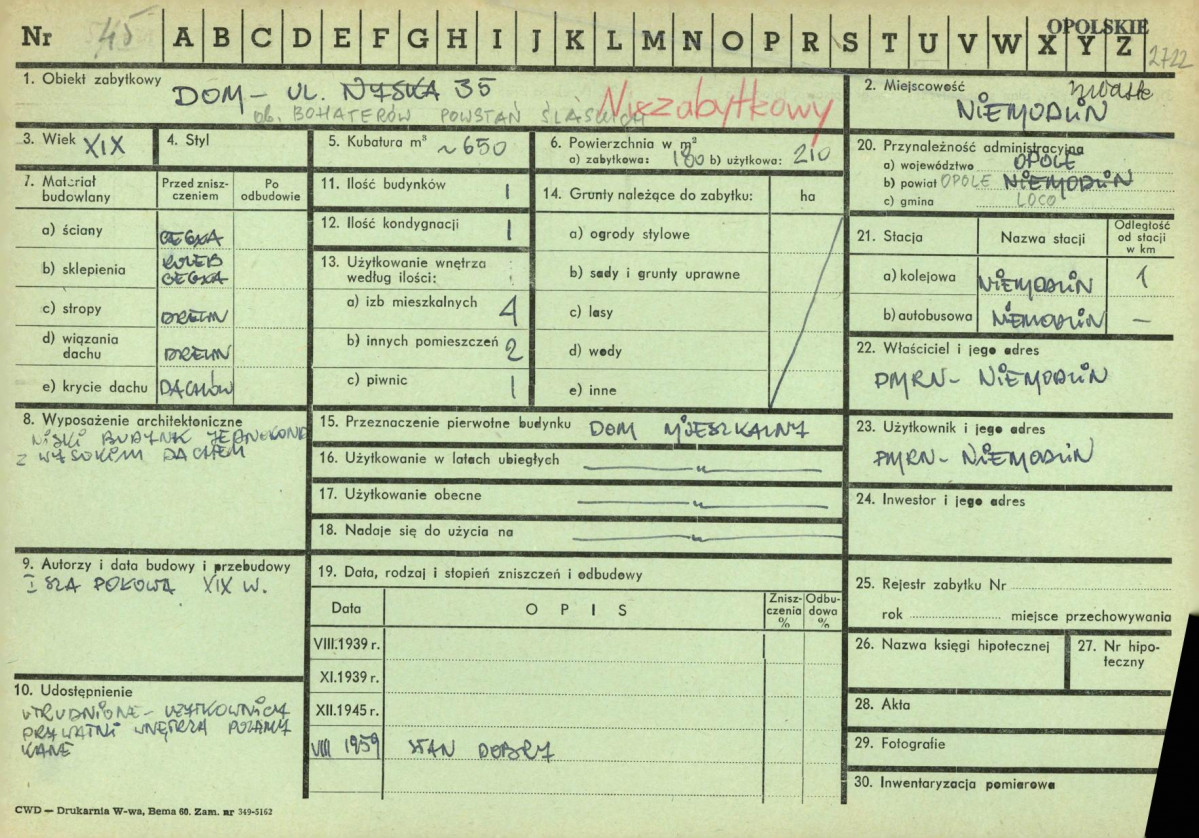 Nr 45 A B C D E F G H I J K L M N O P R S T U V W X Y Z
OPOLSKIE
2722
1. Obiekt zabytkowy
DOM - UL. NYSKA 35
ob. BOHATERÓW POWSTAŃ ŚLĄSKICH
Niezabytkowy
2. Miejscowość
NIEMODLIN
3. Wiek XIX
4. Styl
5. Kubatura m³ ~650
6. Powierzchnia w m²
a) zabytkowa: 180 b) użytkowa: 210
20. Przynależność administracyjna
a) województwo OPOLE
b) powiat OPOLE NIEMODLIN
c) gmina LOCO
7. Materiał budowlany
Przed zniszczeniem
Po odbudowie
a) ściany CEGŁA
b) sklepienia KOLEB CEGŁA
c) stropy DREWN
d) wiązania dachu DREWN
e) krycie dachu DACHÓW
11. Ilość budynków 1
12. Ilość kondygnacji 1
13. Użytkowanie wnętrza według ilości:
a) izb mieszkalnych 4
b) innych pomieszczeń 2
c) piwnic 1
14. Grunty należące do zabytku: ha
a) ogrody stylowe
b) sady i grunty uprawne
c) lasy
d) wody
e) inne
21. Stacja
Nazwa stacji
Odległość od stacji w km
a) kolejowa NIEMODLIN 1
b) autobusowa NIEMODLIN —
22. Właściciel i jego adres
PMRN - NIEMODLIN
8. Wyposażenie architektoniczne
NISKI BUDYNK JEDNOKOND
Z WYSOKIM DACHEM
15. Przeznaczenie pierwotne budynku DOM MIESZKALNY
16. Użytkowanie w latach ubiegłych — " —
17. Użytkowanie obecne — " —
18. Nadaje się do użycia na — " —
23. Użytkownik i jego adres
PMRN - NIEMODLIN
24. Inwestor i jego adres
9. Autorzy i data budowy i przebudowy
I SZA POŁOWA XIX W.
19. Data, rodzaj i stopień zniszczeń i odbudowy
Data
OPIS
Zniszczenia %
Odbudowa %
VIII.1939 r.
XI.1939 r.
XII.1945 r.
VIII 1959 STAN DOBRY
25. Rejestr zabytku Nr
rok miejsce przechowywania
26. Nazwa księgi hipotecznej
27. Nr hipoteczny
10. Udostępnienie
UTRUDNIONE - UŻYTKOWNICY
PRYWATNI WNĘTRZA POZAMY
KANE
28. Akta
29. Fotografie
30. Inwentaryzacja pomiarowa
CWD — Drukarnia W-wa, Bema 60. Zam. nr 349-5162